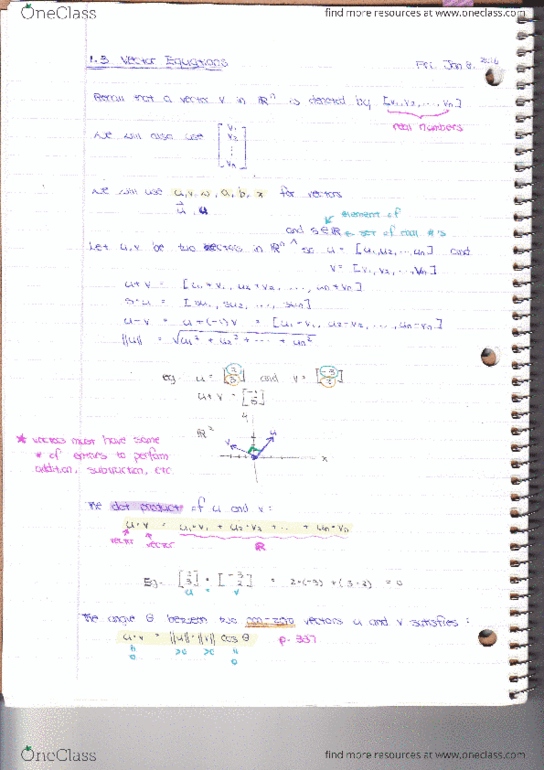 OneClass
find more resources at www.oneclass.com
1.3 Vector Equations
Fri. Jan 8, 2016
Recall that a vector v in ℝⁿ is denoted by [v₁, v₂, ..., vₙ]
real numbers
we will also use [v₁ v₂ ⋮ vₙ]
we will use u, v, w, a, b, x for vectors
u⃗, u
element of
and s∈ℝ ← set of real #'s
Let u, v be two vectors in ℝⁿ so u = [u₁, u₂, ..., uₙ] and
v = [v₁, v₂, ..., vₙ]
u+v = [u₁+v₁, u₂+v₂, ..., uₙ+vₙ]
s·u = [su₁, su₂, ..., suₙ]
u-v = u+(-1)v = [u₁-v₁, u₂-v₂, ..., uₙ-vₙ]
||u|| = √u₁² + u₂² + ... + uₙ²
eg. u = [2 3] and v = [-3 2]
u+v = [-1 5]
ℝ²
v
u
x
* vectors must have same
# of entries to perform
addition, subtraction, etc
The dot product of u and v:
u·v = u₁·v₁ + u₂·v₂ + ... + uₙ·vₙ
vector vector ℝ
Eg. [2 3] · [-3 2] = 2·(-3) + (3·2) = 0
u · v
The angle θ between two non-zero vectors u and v satisfies:
u·v = ||u||·||v|| cos θ
p. 337
OneClass
find more resources at www.oneclass.com